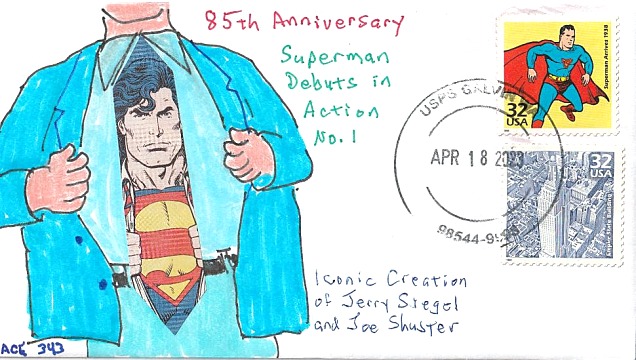 85th Anniversary
Superman
Debuts in
Action
No. 1
Superman Arrives 1938
32
USA
USPS GALVIN
APR 18 2023
98544
32
USA
Empire State Building
Iconic Creation
of Jerry Siegel
and Joe Shuster
ACE 343